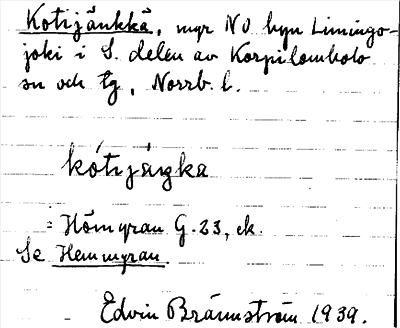 Kotijänkkä, myr NV byn Limingo-
joki i S. delen av Korpilombolo
sn och tg, Norrb. l.
kótijäŋka
= Hömyran G. 23, ek.
Se Hemmyran.
Edvin Brännström 1939.